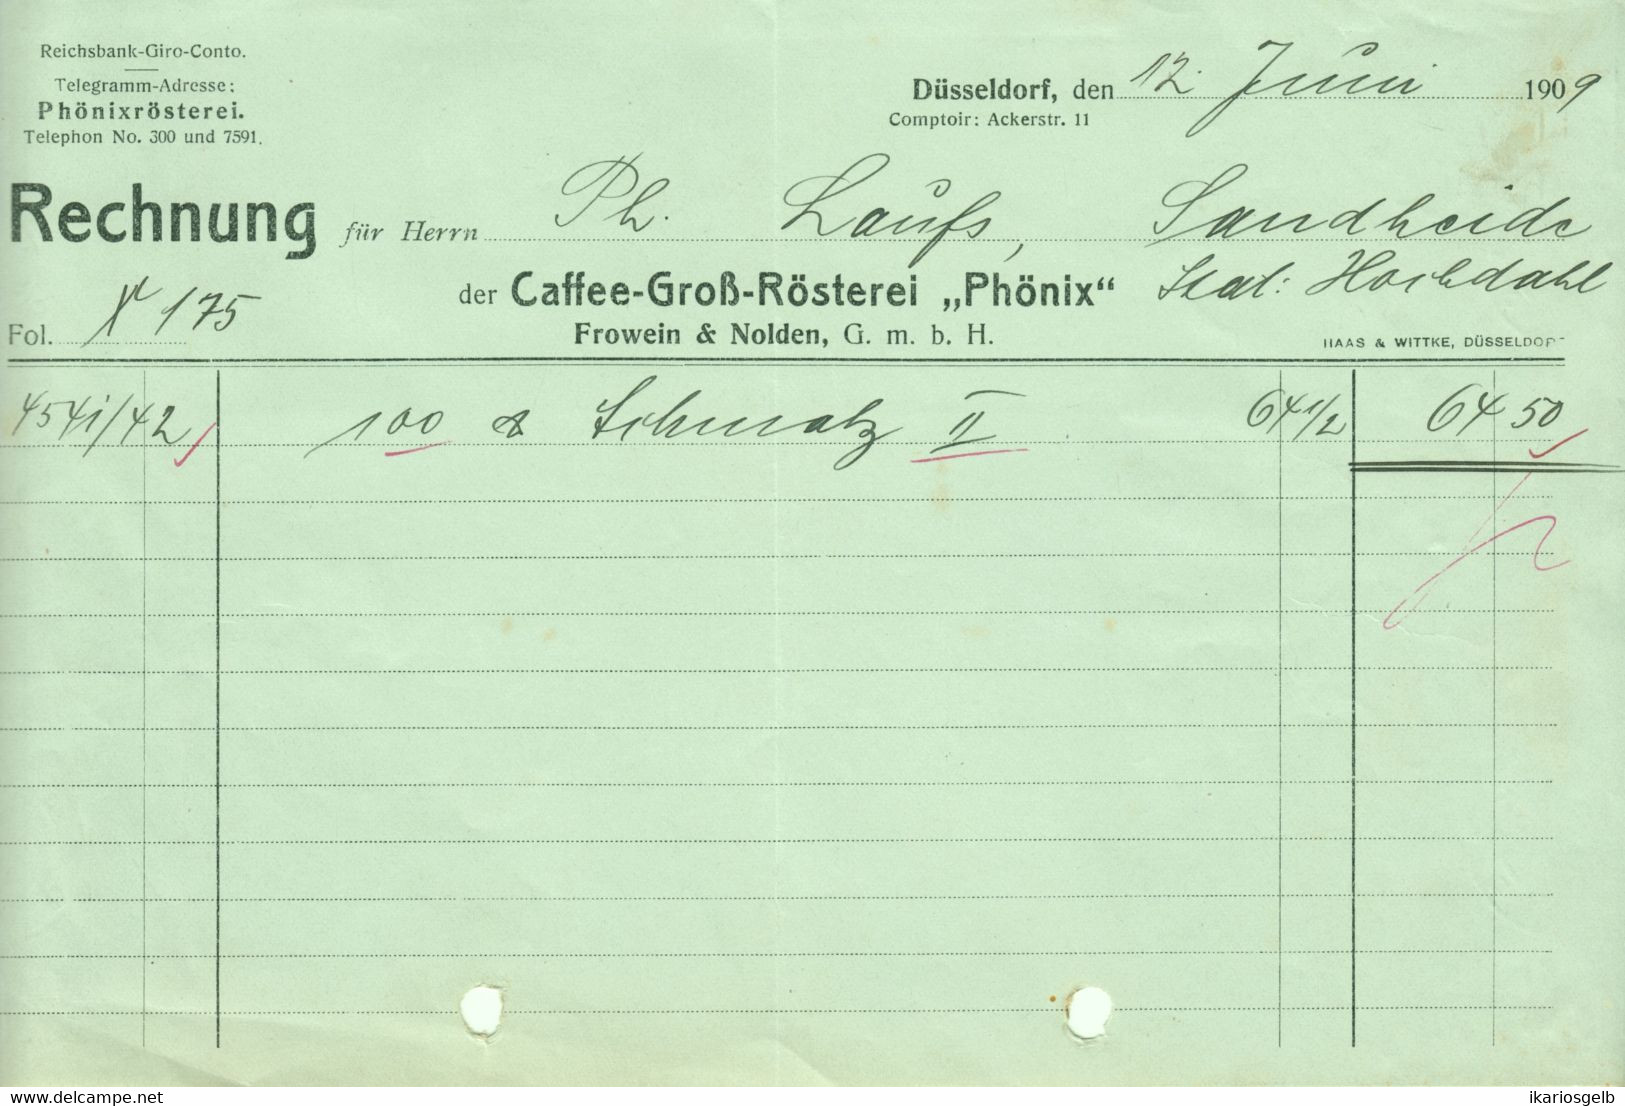 Reichsbank-Giro-Conto.
Telegramm-Adresse:
Phönixrösterei.
Telephon No. 300 und 7591.
Düsseldorf, den 12. Juni 1909
Comptoir: Ackerstr. 11
Rechnung für Herrn Ph. Laufs, Sandheide
Stat: Hochdahl
der Caffee-Groß-Rösterei „Phönix“
Fol. 175
Frowein & Nolden, G. m. b. H.
HAAS & WITTKE, DÜSSELDORF
4541/42 100 ℔ Schmalz II 64 1/2 64 50
the-west.com
ikariosgelb